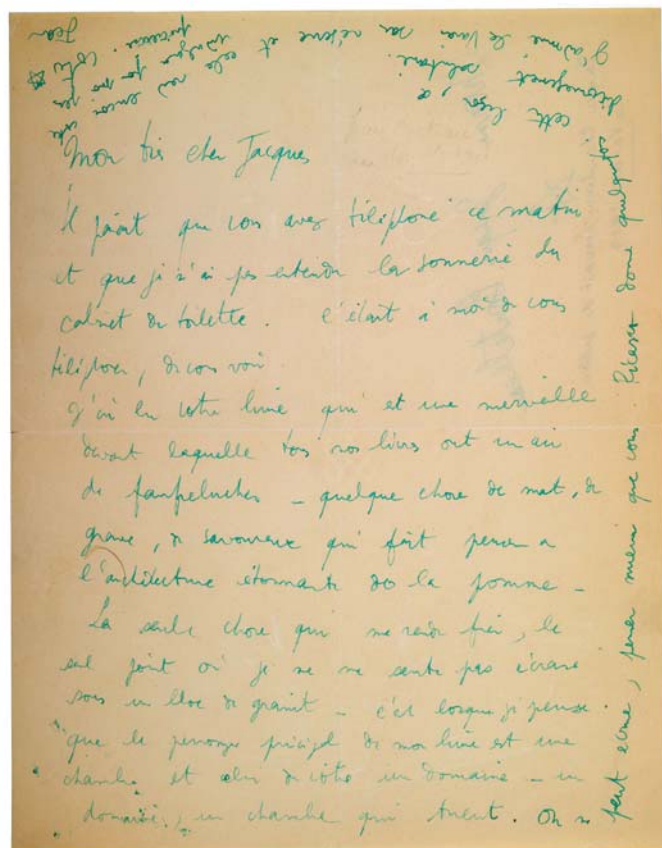 Mon très cher Jacques
Il paraît que vous avez téléphoné ce matin
et que je n'ai pas entendu la sonnerie du
cabinet de toilette. C'était à moi de vous
téléphoner, de vous voir
J'ai lu votre livre qui est une merveille
devant laquelle tous nos livres ont un air
de fanfreluches – quelque chose de mat, de
grave, de savoureux qui fait penser a
l'architecture étonnante de la pomme –
La seule chose qui me rende fier, le
seul point où je ne me sente pas écrasé
sous un bloc de granit – c'est lorsque je pense
que le personnage principal de mon livre est une
"chambre" et celui de votre un domaine – un
domaine, un chambre qui tuent. On ne
peut écrire, penser mieux que vous. Picasso donne quelquefois
cette leçon, ce
découragement salutaire.
J'admire le sans réserve et cela
par ma paresse. Votre
Jean